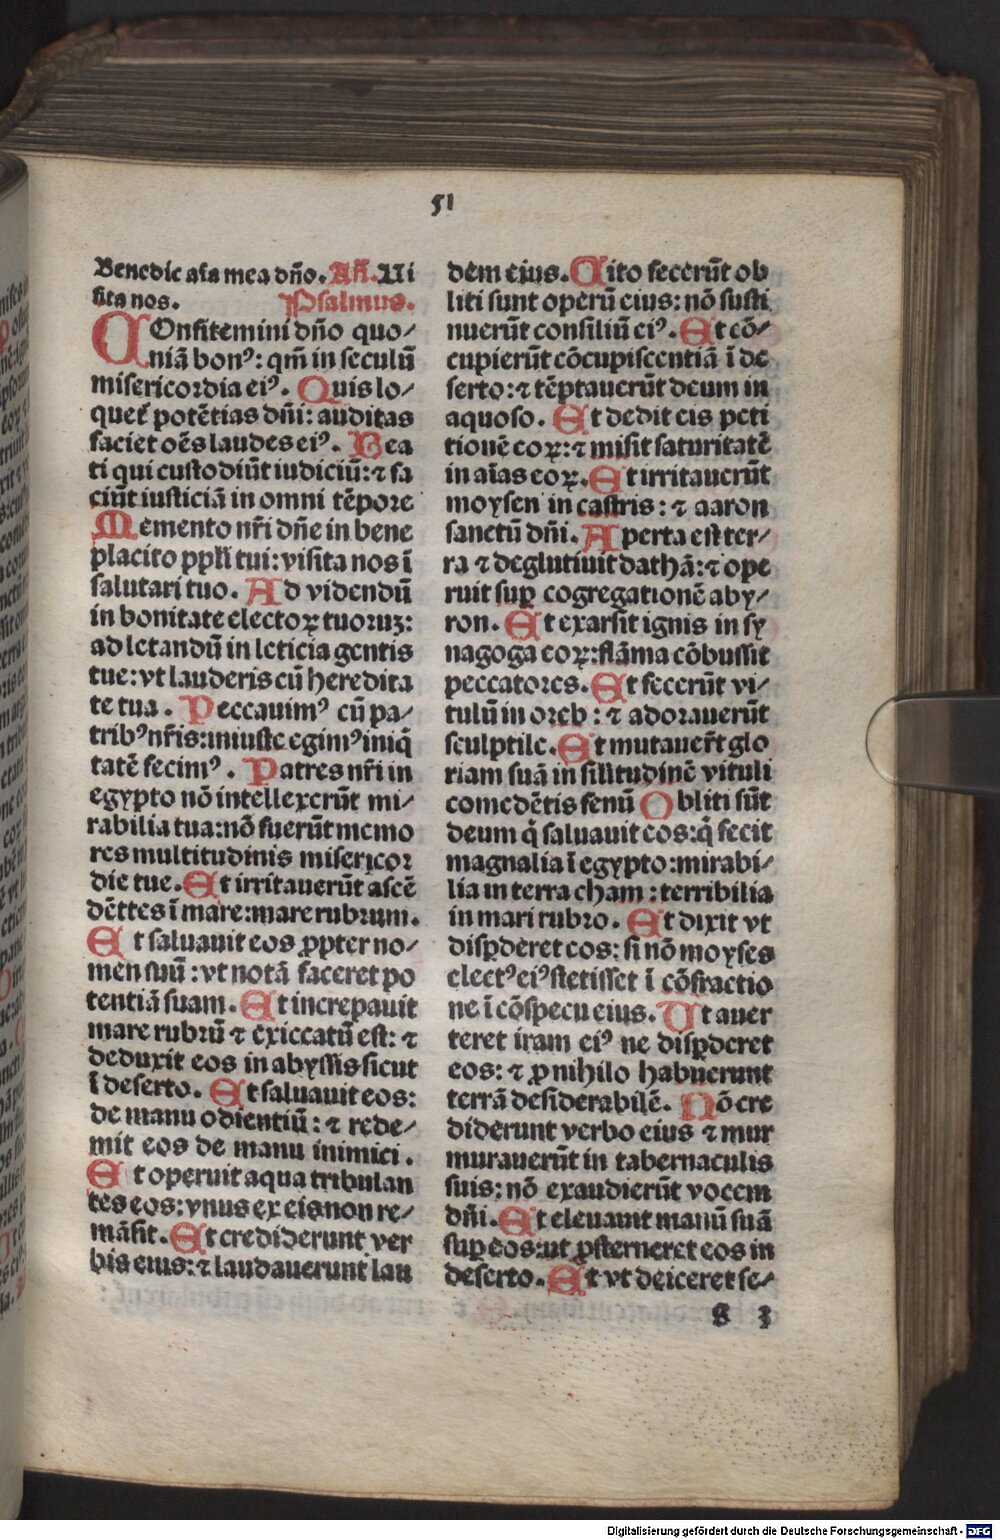 51
Benedic aĩa mea dño. Añ. Ui
sita nos. Psalmus.
COnfitemini dño quo⸗
niã bonꝰ: qm̃ in seculũ
misericordia eiꝰ. Quis lo⸗
quet᷑ potẽtias dñi: auditas
faciet oẽs laudes eiꝰ. Bea
ti qui custodiũt iudiciũ: ⁊ fa
ciũt iusticiã in omni tẽpore
Memento nr̃i dñe in bene
placito ppĺi tui: visita nos ĩ
salutari tuo. Ad videndũ
in bonitate electoꝝ tuoruꝫ:
ad letandũ in leticia gentis
tue: vt lauderis cũ heredita
te tua. Peccauimꝰ cũ pa⸗
tribꝰ nr̃is: iniuste egimꝰ iniq̃
tatẽ fecimꝰ. Patres nr̃i in
egypto nõ intellexerũt mi⸗
rabilia tua: nõ fuerũt memo
res multitudinis misericor
die tue. Et irritauerũt ascẽ
dẽttes ĩ mare: mare rubrum.
Et saluauit eos ꝓpter no⸗
men suũ: vt notã faceret po
tentiã suam. Et increpauit
mare rubrũ ⁊ exiccatũ est: ⁊
deduxit eos in abyssis sicut
ĩ deserto. Et saluauit eos:
de manu odientiũ: ⁊ rede⸗
mit eos de manu inimici.
Et operuit aqua tribulan
tes eos: vnus ex eis non re⸗
mãsit. Et crediderunt ver
bis eius: ⁊ laudauerunt lau
dem eius. Cito fecerũt ob
liti sunt operũ eius: nõ susti
nuerũt consiliũ eiꝰ. Et cõ⸗
cupierũt cõcupiscentiã ĩ de
serto: ⁊ tẽptauerũt deum in
aquoso. Et dedit eis peti
tionẽ eoꝝ: ⁊ misit saturitatẽ
in aĩas eoꝝ. Et irritauerũt
moysen in castris: ⁊ aaron
sanctũ dñi. Aperta est ter⸗
ra ⁊ deglutiuit dathã: ⁊ ope
ruit suꝑ cogregationẽ aby⸗
ron. Et exarsit ignis in sy
nagoga eoꝝ: flãma cõbussit
peccatores. Et fecerũt vi⸗
tulũ in oreb: ⁊ adorauerũt
sculptile. Et mutauer̃t glo
riam suã in silĩtudinẽ vituli
comedẽtis fenũ Obliti sũt
deum q̃ saluauit eos: q̃ fecit
magnalia ĩ egypto: mirabi⸗
lia in terra cham: terribilia
in mari rubro. Et dixit vt
disꝑderet eos: si nõ moyses
electꝰ eiꝰ stetisset ĩ cõfractio
ne ĩ cõspecu eius. Ut auer
teret iram eiꝰ ne disꝑderet
eos: ⁊ ꝓ nihilo habuerunt
terrã desiderabilẽ. Nõ cre
diderunt verbo eius ⁊ mur
murauerũt in tabernaculis
suis: nõ exaudierũt vocem
dñi. Et eleuauit manũ suã
suꝑ eos: ut ꝓsterneret eos in
deserto. Et vt deiceret se⸗
Digitalisierung gefördert durch die Deutsche Forschungsgemeinschaft - DFG